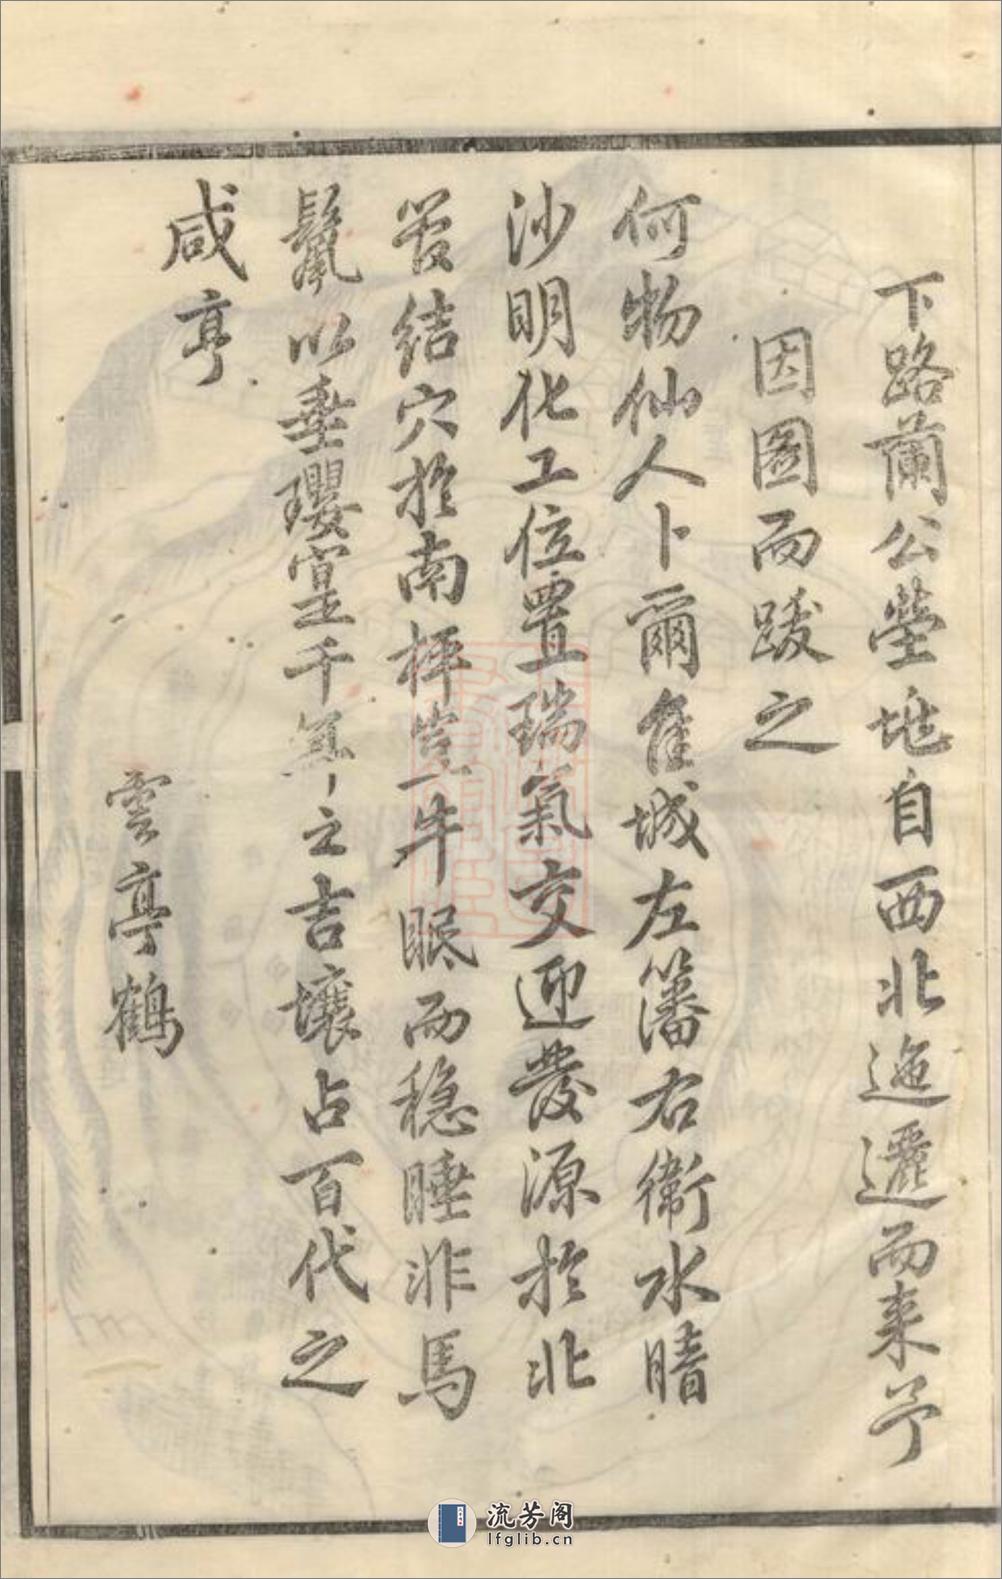 下路蘭公塋地自西北迤邐而来予
因圖而跋之
何物仙人卜爾佳城左籓右衛水晴
沙明化工位置瑞氣交迎發源於北
管結穴於南坪豈牛眠而穩睡非馬
鬛以垂瓔寔千年之吉壤占百代之
咸亨
雲亭鶴
流芳阁
lfglib.cn